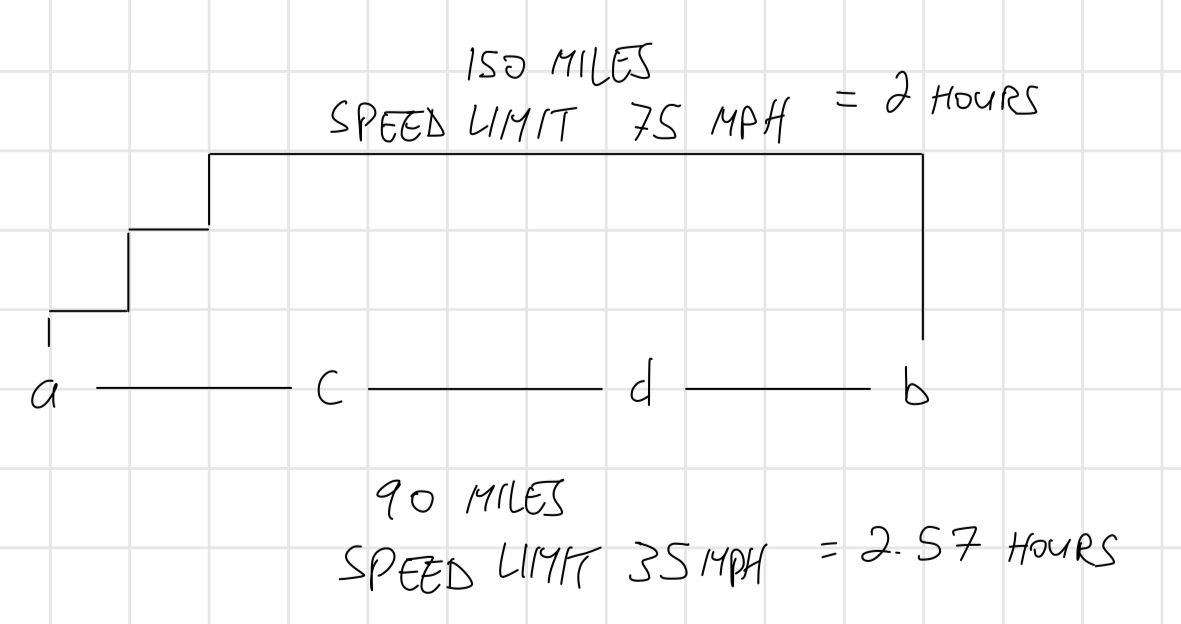 150 MILES
SPEED LIMIT 75 MPH = 2 HOURS
a c d b
90 MILES
SPEED LIMIT 35 MPH = 2.57 HOURS